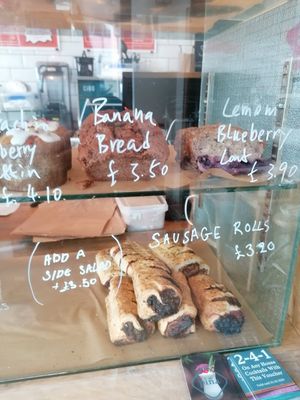 Banana
Bread
£3.50
Lemon
Blueberry
Loaf
£3.90
£4.10
SAUSAGE ROLLS
£3.20
ADD A
SIDE SALAD
+£3.50
2-4-1
On Any House
Cocktails With
This Voucher